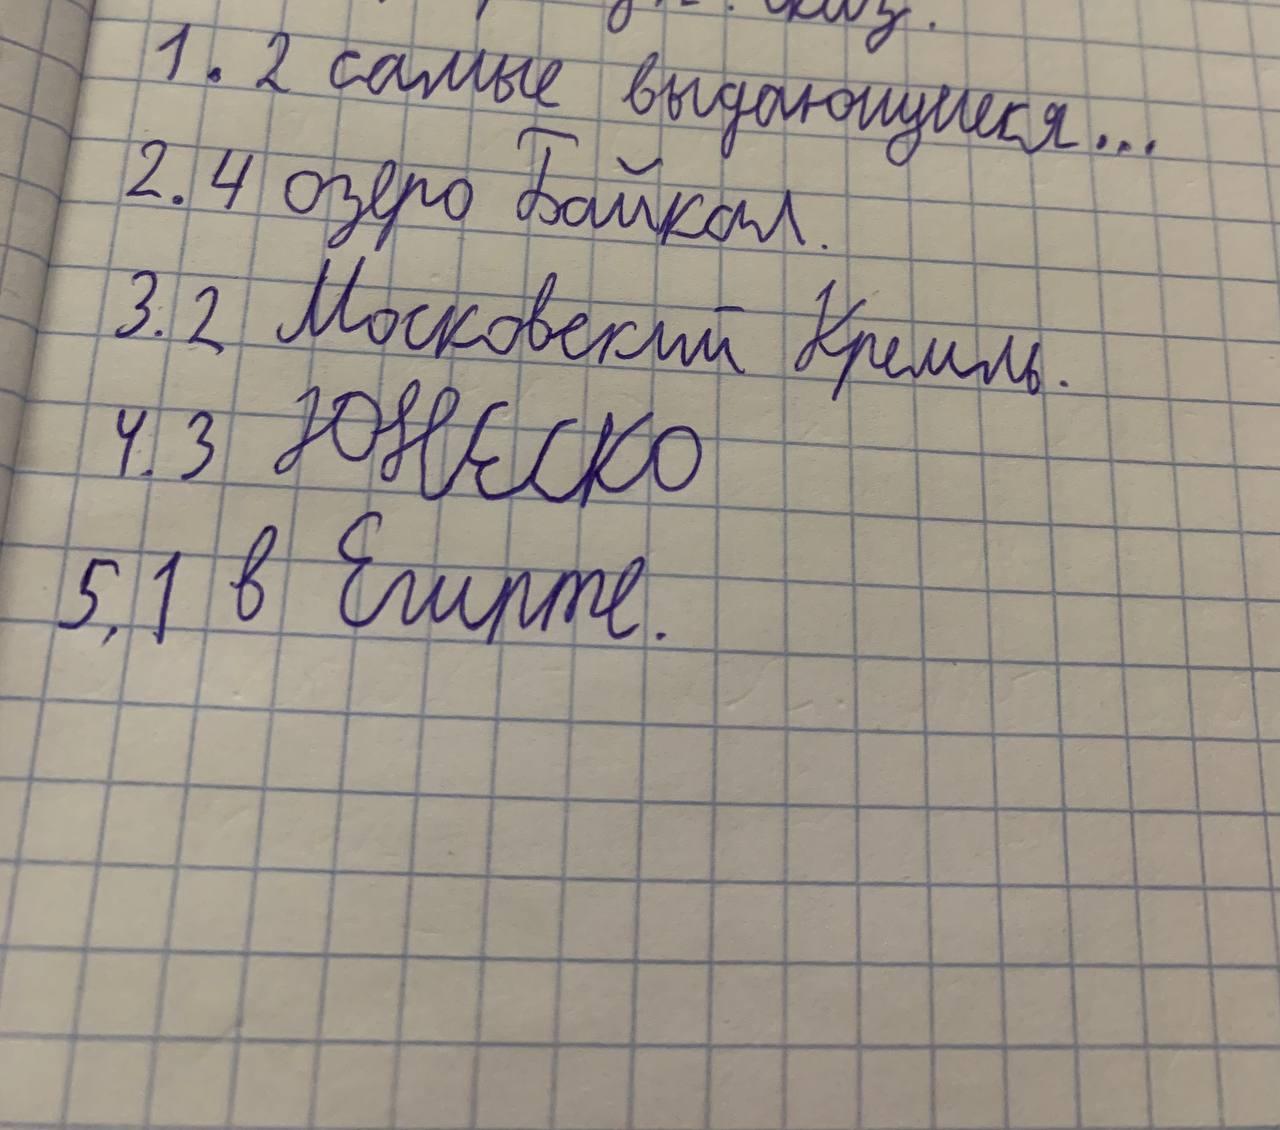 1. 2 самые выдающиеся...
2. 4 озеро Байкал.
3. 2 Московский Кремль.
4. 3 ЮНЕСКО
5, 1 в Египте.